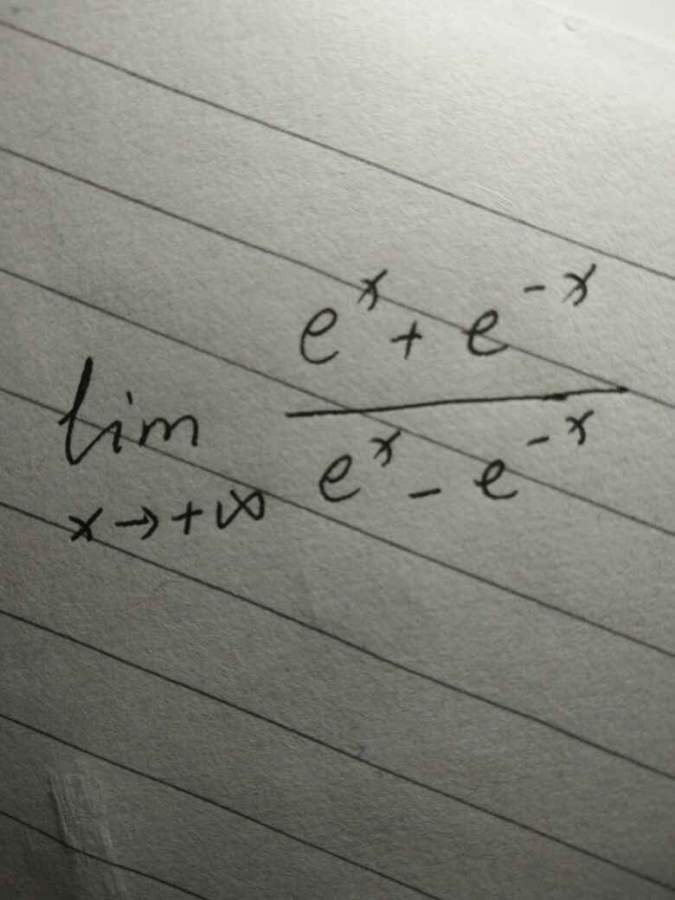 lim x→+∞ (e^x + e^{-x}) / (e^x - e^{-x})